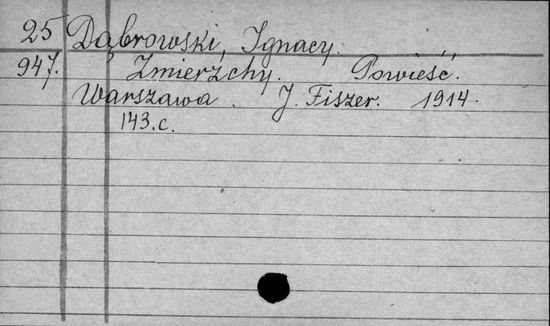 25 Dąbrowski, Ignacy.
947. Zmierzchy. Powieść.
Warszawa. J. Fiszer. 1914.
143.c.